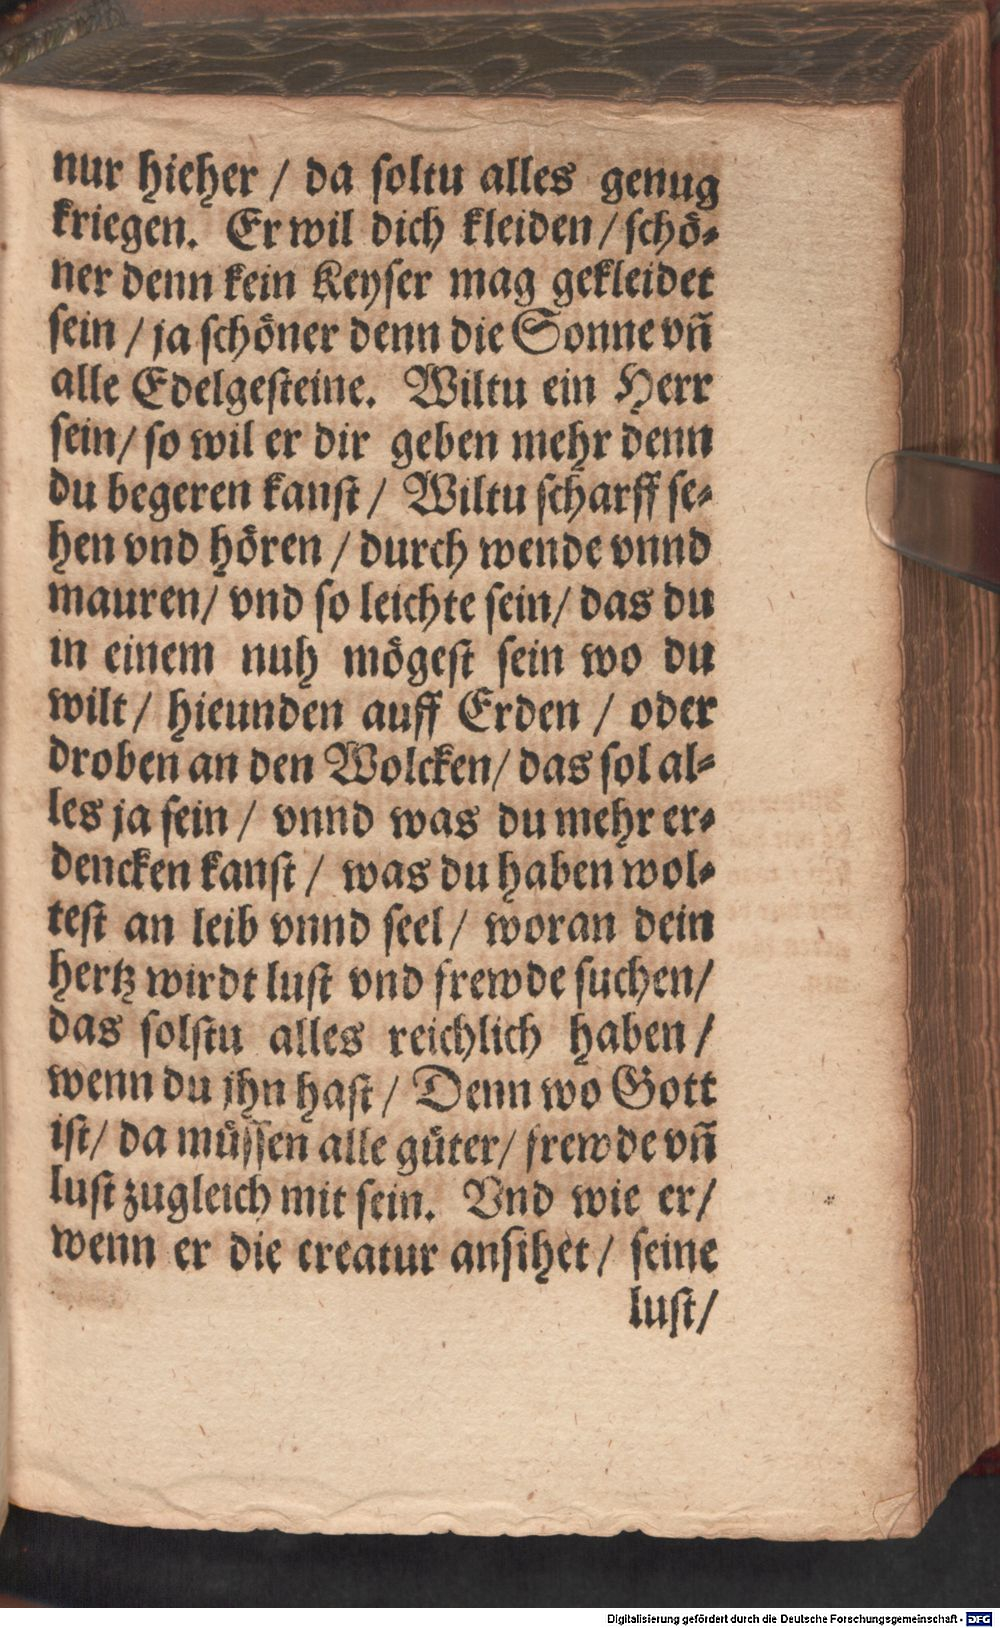 nur hieher / da soltu alles genug
kriegen. Er wil dich kleiden / schö-
ner denn kein Keyser mag gekleidet
sein / ja schöner denn die Sonne vñ
alle Edelgesteine. Wiltu ein Herr
sein / so wil er dir geben mehr denn
du begeren kanst / Wiltu scharff se-
hen vnd hören / durch wende vnnd
mauren / vnd so leichte sein / das du
in einem nuh mögest sein wo du
wilt / hieunden auff Erden / oder
droben an den Wolcken / das sol al-
les ja sein / vnnd was du mehr er-
dencken kanst / was du haben wol-
test an leib vnnd seel / woran dein
hertz wirdt lust vnd frewde suchen /
das solstu alles reichlich haben /
wenn du jhn hast / Denn wo Gott
ist / da müssen alle güter / frewde vñ
lust zugleich mit sein. Vnd wie er /
wenn er die creatur ansihet / seine
lust /
Digitalisierung gefördert durch die Deutsche Forschungsgemeinschaft - DFG